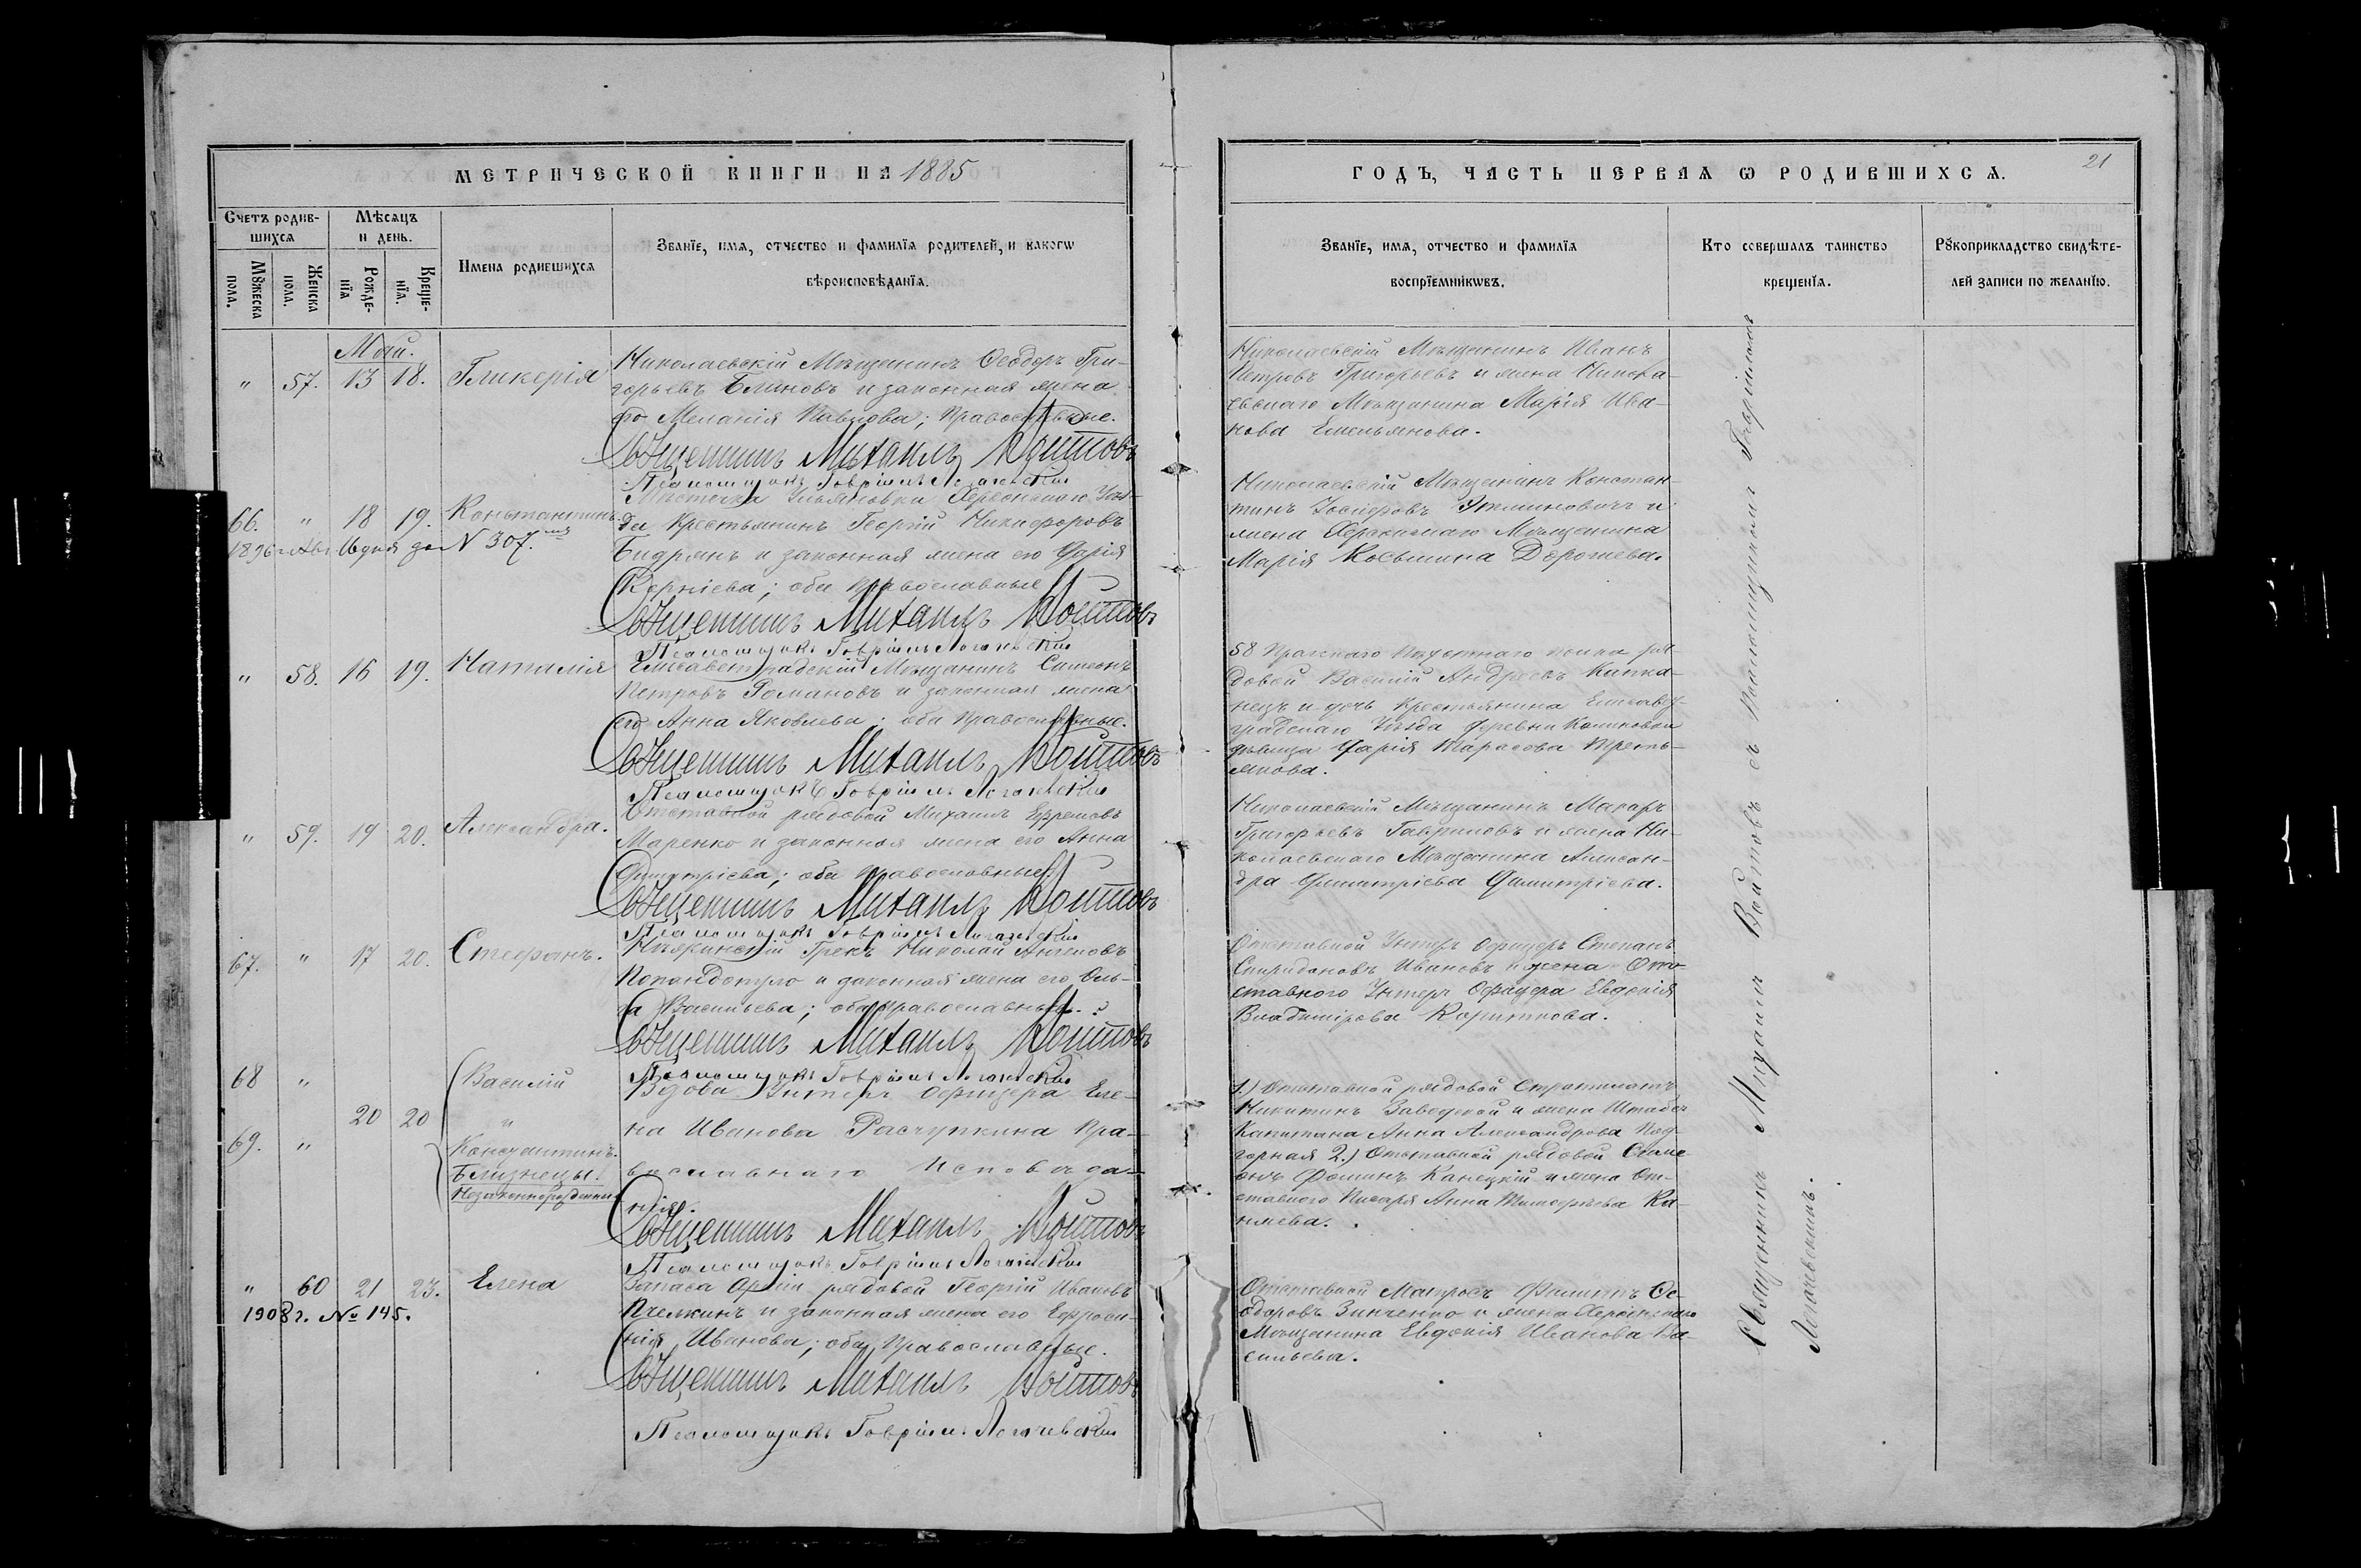 МЕТРИЧЕСКОЙ КНИГИ НА 1885
Счетъ родив-
шихсѧ
Мѣсѧцъ
и день.
Мꙋжеска
пола.
Женска
пола.
Рожде-
нїѧ
Креще-
нїѧ.
Имена родившихсѧ
Званїе, имѧ, отчество и фамилїѧ родителей, и какогѡ
вѣроисповѣданїѧ.
Май.
" 57. 13 18. Гликерія
Николаевскій Мѣщанинъ Ѳеодоръ Гри-
горьевъ Блиновъ и законная жена
его Меланія Павлова; Православные.
Священникъ Михаилъ Войтовъ
Псаломщикъ Гавріилъ Логачевскій
66. " 18 19. Константинъ.
1896 г. Авг. 16 дня за N 307.
Мѣстечка Ульяновки Херсонскаго Уѣз-
да Крестьянинъ Георгій Никифоровъ
Бидрянъ и законная жена его Дарія
Корніева; оба православные
Священникъ Михаилъ Войтовъ
Псаломщикъ Гавріилъ Логачевскій
" 58. 16 19. Наталія
Елисаветградскій Мѣщанинъ Симеонъ
Петровъ Романовъ и законная жена
его Анна Яковлева; оба Православные.
Священникъ Михаилъ Войтовъ
Псаломщикъ Гавріилъ Логачевскій
" 59. 19 20. Александра.
Отставной рядовой Михаилъ Ефремовъ
Маренко и законная жена его Анна
Димитріева; оба православные
Священникъ Михаилъ Войтовъ
Псаломщикъ Гавріилъ Логачевскій
67. " 17 20. Стефанъ.
Нѣжинскій Грекъ Николай Ангеловъ
Попандопуло и законная жена его Оль-
га Васильева; оба православные.
Священникъ Михаилъ Войтовъ
Псаломщикъ Гавріилъ Логачевскій
68 " Василій
20 20 и
69. " Константинъ.
Близнецы.
Незаконнорожденные
Вдова Унтеръ Офицера Еле-
на Иванова Расчупкина Пра-
вославнаго Исповѣда-
нія.
Священникъ Михаилъ Войтовъ
Псаломщикъ Гавріилъ Логачевскій
" 60 21 23. Елена
1908 г. № 145.
Запаса Арміи рядовой Георгій Ивановъ
Пчелкинъ и законная жена его Ефроси-
нія Иванова; оба Православные.
Священникъ Михаилъ Войтовъ
Псаломщикъ Гавріилъ Логачевскій
ГОДЪ, ЧАСТЬ ПЕРВАѦ Ѡ РОДИВШИХСѦ.
21
Званїе, имѧ, отчество и фамилїѧ
воспрїемникѡвъ.
Кто совершалъ таинство
крещенїѧ.
Рꙋкоприкладство свидѣте-
лей записи по желанїю.
Николаевскій Мѣщанинъ Иванъ
Петровъ Григорьевъ и жена Никола-
евскаго Мѣщанина Марія Ива-
нова Емельянова.
Николаевскій Мѣщанинъ Констан-
тинъ Іосифовъ и
жена Херсонскаго Мѣщанина
Марія Косьмина Дорошева.
58 Пражскаго Пѣхотнаго полка ря-
довой Василій Андреевъ Капка-
нецъ и дочь Крестьянина Елисавет-
градскаго Уѣзда деревни Калиновой
дѣвица Дарія Тарасова Треть-
якова.
Николаевскій Мѣщанинъ Макаръ
Григорьевъ Гавриловъ и жена Ни-
колаевскаго Мѣщанина Алексан-
дра Димитріева Димитріева.
Отставной Унтеръ Офицеръ Степанъ
Спиридоновъ Ивановъ и жена От-
ставного Унтеръ Офицера Евдокія
Владимірова Корытнова.
1.) Отставной рядовой Стратилатъ
Никитинъ Заводской и жена Штабсъ
Капитана Анна Александрова Под-
горная 2.) Отставной рядовой Симе-
онъ Фоминъ Канецкій и жена От-
ставного Писаря Анна Тимофѣева Ка-
няева.
Отставной Матросъ Филиппъ Ѳе-
одоровъ Зинченко и жена Херсонскаго
Мѣщанина Евдокія Иванова Ва-
сильева.
Священникъ Михаилъ Войтовъ съ псаломщикомъ Гавріиломъ
Логачевскимъ.